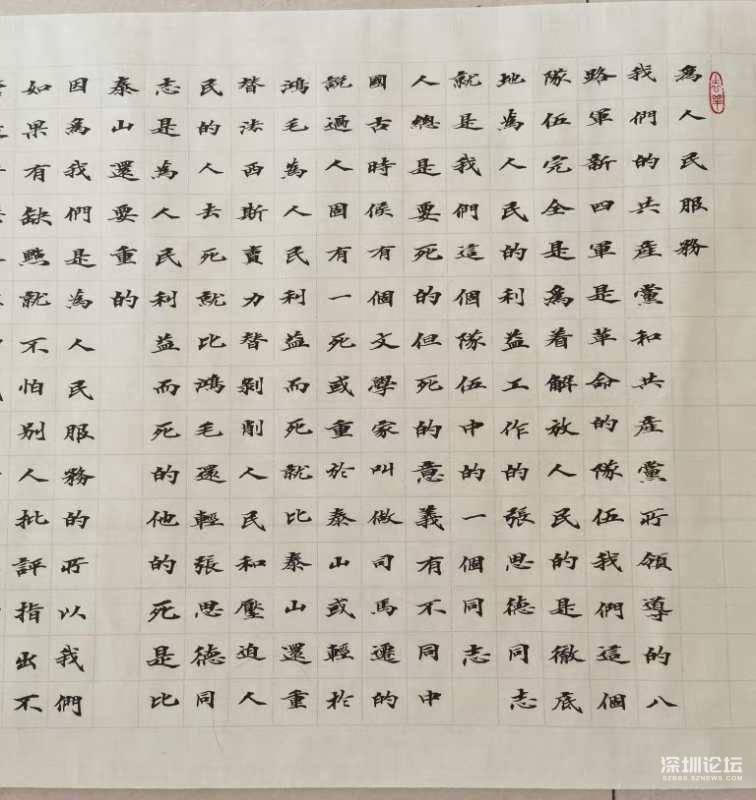 為人民服務
我們的共產黨和共產黨所領導的八
路軍新四軍是革命的隊伍我們這個
隊伍完全是為着解放人民的是徹底
地為人民的利益工作的張思德同志
就是我們這個隊伍中的一個同志
人總是要死的但死的意義有不同中
國古時候有個文學家叫做司馬遷的
說過人固有一死或重於泰山或輕於
鴻毛為人民利益而死就比泰山還重
替法西斯賣力替剝削人民和壓迫人
民的人去死就比鴻毛還輕張思德同
志是為人民利益而死的他的死是比
泰山還要重的
因為我們是為人民服務的所以我們
如果有缺點就不怕別人批評指出不
深圳论坛
SZBBS.SZNEWS.COM